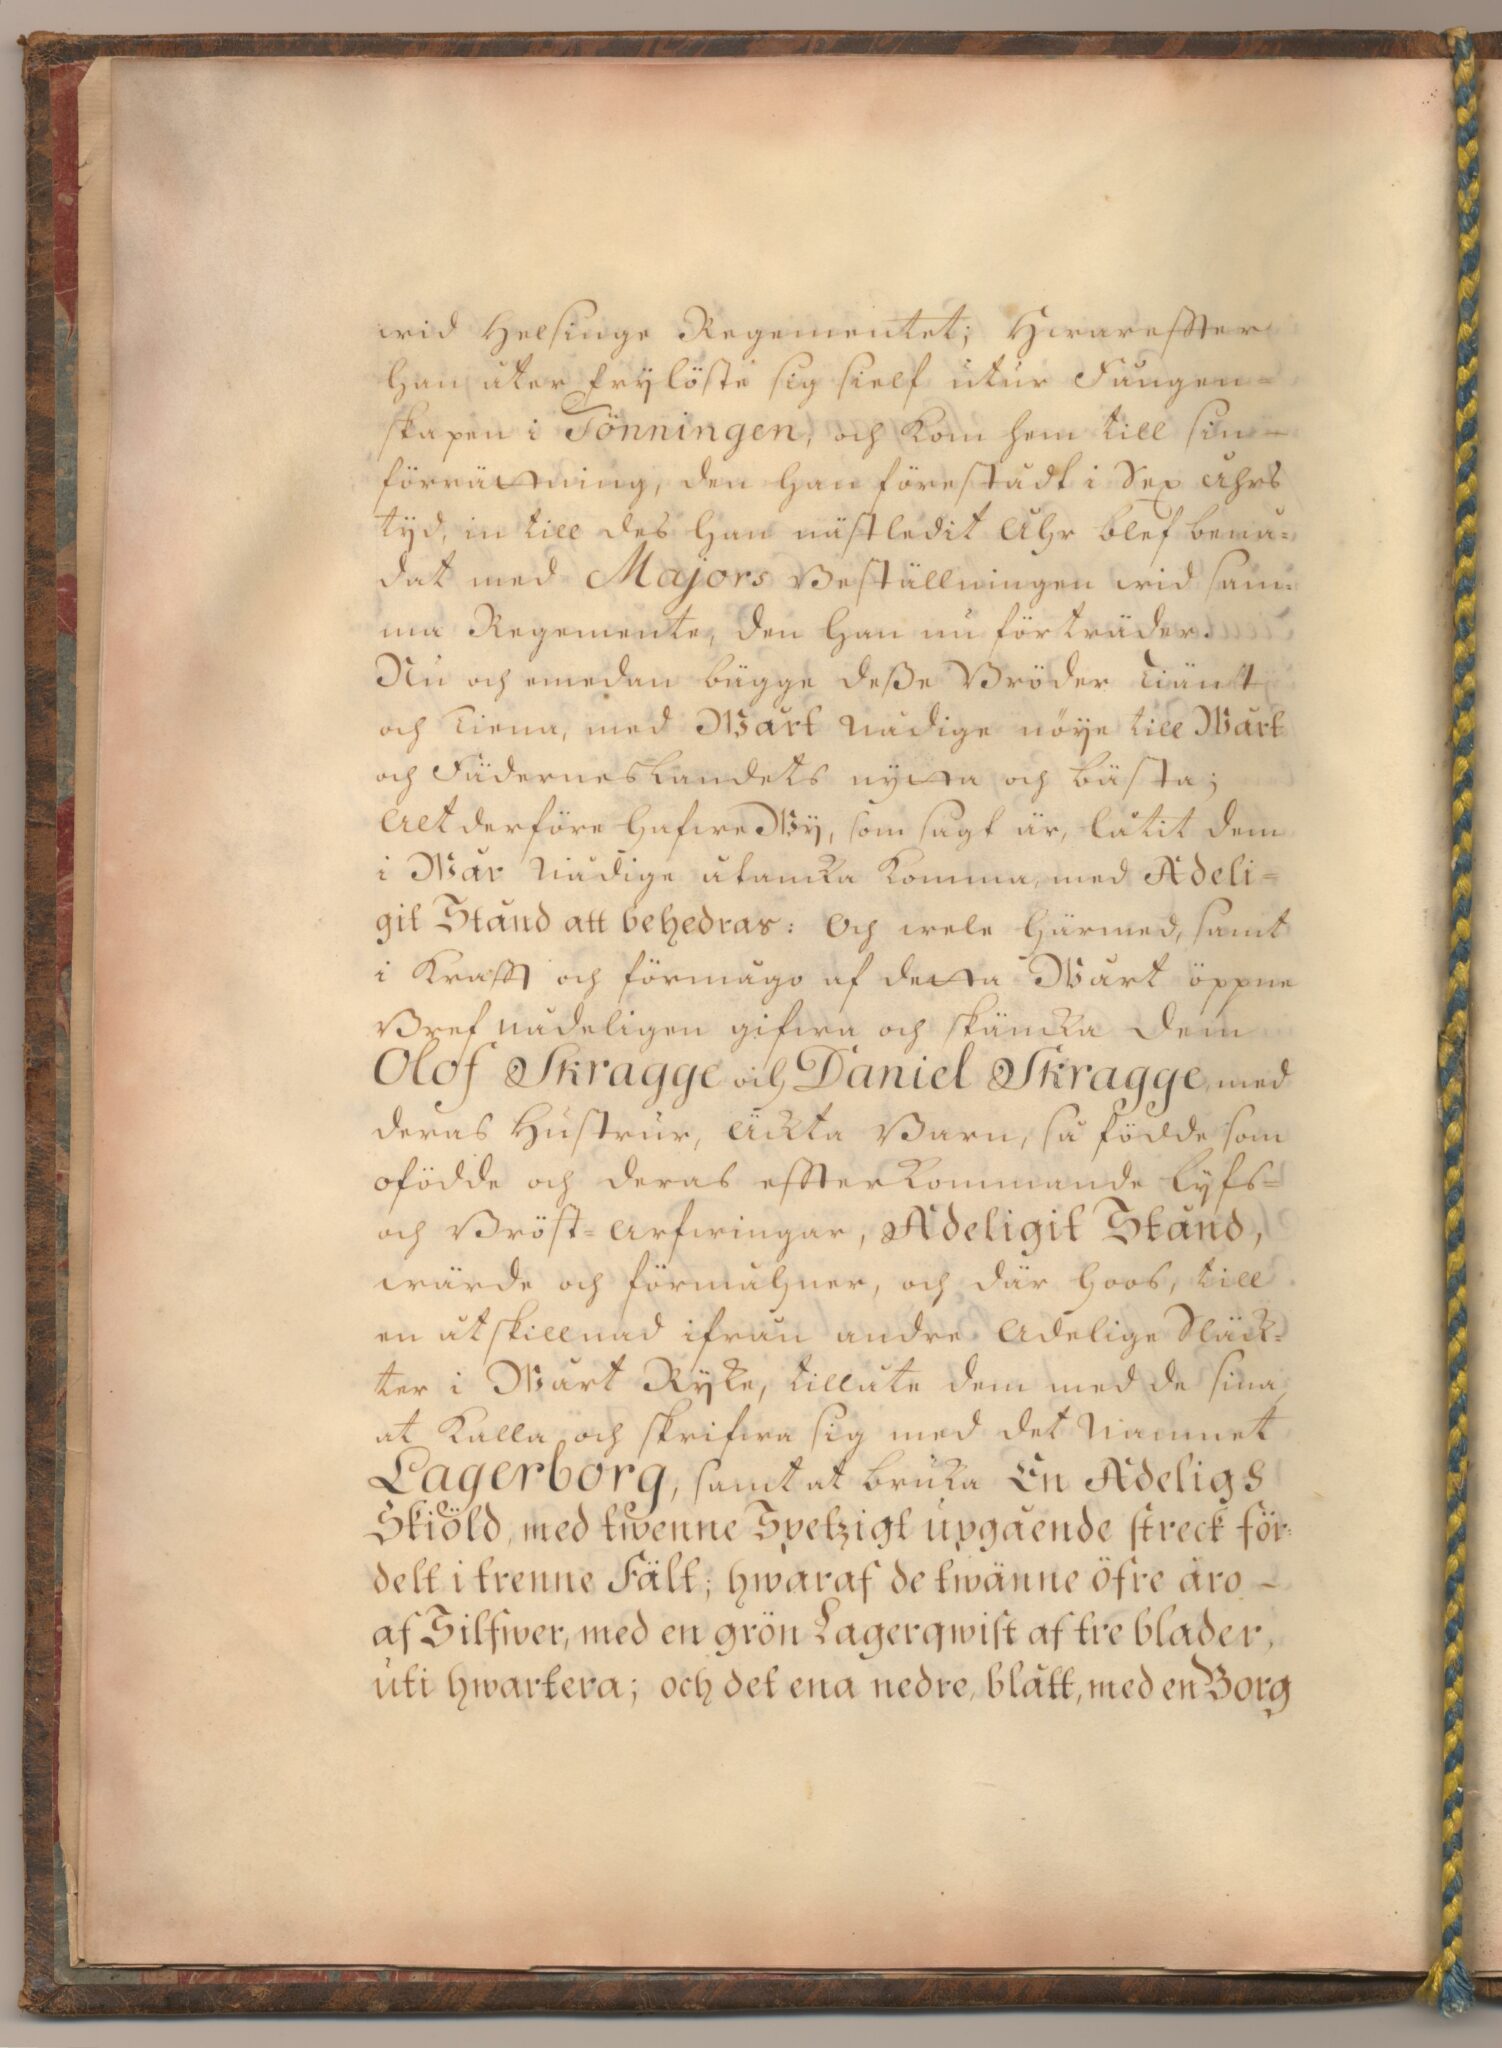 wid Helsinge Regementet; Hwareffter
han åter frylöste sig sielf utur Fången-
skapen i Tönningen, och kom hem till sin
förrättning, den han förestådt i Sex Åhrs
tyd, in till des han nästledit Åhr blef benå-
dat med Majors Beställningen wid sam-
ma Regemente, den han nu förträder.
Nu och emedan bägge deße Bröder tiänt
och tiena, med Wårt nådige nöye till Wårt
och Fäderneslandets nÿtta och bästa;
Alt derföre hafwe Wÿ, som sagt är, låtit dem
i Wår nådige åtancka komma, med Adeli-
git Stånd att behedras: Och wele härmed, samt
i krafft och förmågo af detta Wårt öppne
Bref nådeligen gifwa och skäncka dem
Olof Skragge och Daniel Skragge, med
deras Hustrur, Äckta Barn, så födde som
ofödde och deras effterkommande Lyfs-
och Bröst-Arfwingar, Adeligit Stånd,
wärde och förmåhner, och där hoos, till
en åtskillnad ifrån andre Adelige Släck-
ter i Wårt Ryke, tillåte dem med de sina
at kalla och skrifwa sig med det Namnet
Lagerborg, samt at bruka En Adeligs
Skiöld, med twenne Spetzigt upgående streck för-
delt i trenne Fält; hwaraf de twänne öfre äro
af Silfwer, med en grön Lagerqwist af tre blader,
uti hwartera; och det ena nedre, blått, med en Borg